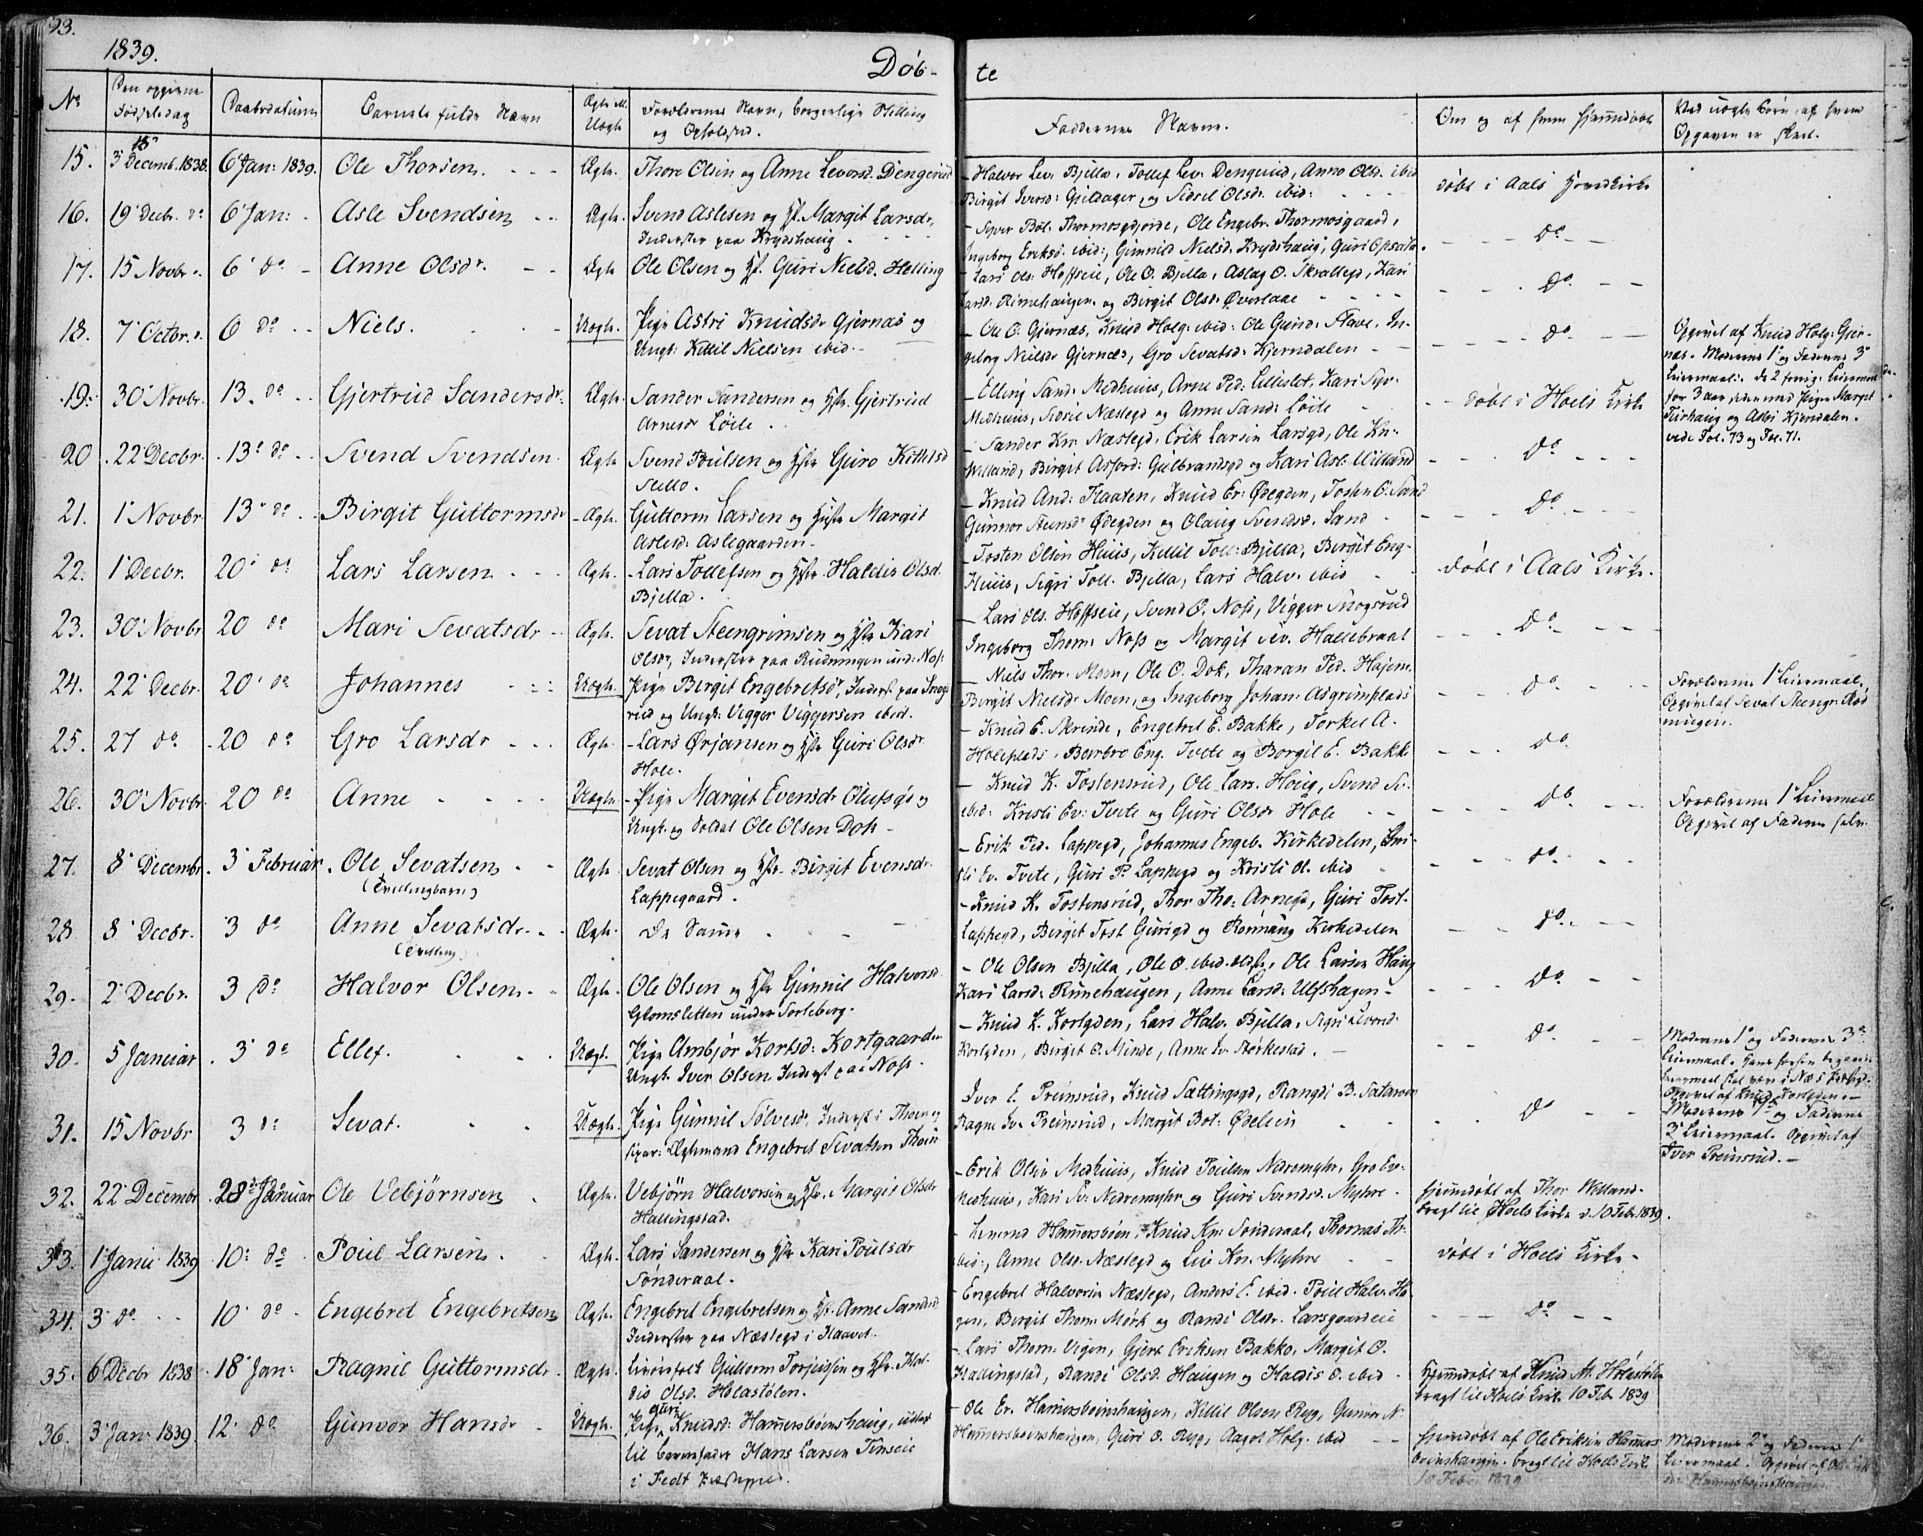 93.
1839.
Døb-
te
No
Den opgivne Fødselsdag
Daabsdatum
Barnets fulde Navn
Ægte el. Uægte
Forældrenes Navn, borgerlige Stilling og Opholdsted.
Faddernes Navne.
Om og af hvem hjemmedøbt
Ved uægte Børn, af hvem Opgaven er skeet.
15. 3 Decemb. 1838. 6 Jan: 1839. Ole Thorsen. Ægte. Thore Olsen og Anne Levorsd. Dengerud
Halvor Lev. Bjella, Tollef Lev. Dengerud, Anne Olsd. ibid
Birgit Iversd: Gjeldager, og Sidsel Olsd. ibid:
døbt i Aals Hovedkirke
16. 19 Decbr. do 6 Jan: Asle Svendsen Ægte. Svend Aslesen og Hst. Margit Larsdr,
Inderster paa Krydshaug.
Syver Bot. Thormosgdjorde, Ole Engebr. Thormosgaard,
Ingeborg Eriksd. ibid:, Gunnild Nielsd. Krydshaug, Guri Opsata.
do
17. 15 Novbr. 6 do Anne Olsdr. Ægte Ole Olsen og Hst. Guri Nielsd. Helling
Lars Ols. Hoffseie, Ole O. Bjella, Aslag O. Skrattegd, Kari
Larsd. Rimehaugen og Birgit Olsd. Øverlaae
do.
18. 7 Octbr. 6 do Niels. Uægte. Pige Astri Knudsdr Gjernæs og
Ungk: Kittil Nielsen ibid.
Ole O. Gjernæs, Knud Holg: ibid: Ole Gund: Stave, In-
geborg Nielsdr Gjernæs, Gro Sevatsd: Kjerndalen
do
Opgivet af Knud Holg: Gjer-
næs. Moderens 1ste og Faderens 3die
Leiermaal. de 2 forrige Leiermaal
for 3 aar siden med Pigen Margit
Turhaug og Astri Kjerndalen.
vide Fol. 73 og Fol. 71.
19. 30 Novbr. 13. do Gjertrud Sandersdr. Ægte. Sander Sandersen og Hst. Gjertrud
Arnesdr Løile.
Elling Sand: Medhuus, Arne Ped: Lilleslet, Kari Syv.
Medhuus, Sidsel Næslegd og Anne Sand: Løile
døbt i Hoels Kirke
20 22 Decbr. 13 do Svend Svendsen Ægte. Svend Poulsen og Hstr Guro Kittilsd
Sander Kn. Næslegd, Erik Larsen Larsgd, Ole Kn.
Villand, Birgit Asford: Gulbrandsgd og Kari Asl: Villand
do
21. 1 Novbr. 13 do Birgit Guttormsdr Ægte. Guttorm Larsen og Hustr Margit
Aslesd: Aslegaarden.
Knud And: Flaaten, Knud Er: Ødegden, Tosten O. Sand
Gunnor Steensdr Ødegden og Olaug Svendsd. Sand
do
22. 1 Decbr. 20 do Lars Larsen Ægte. Lars Tollefsen og Hstr Haldis Olsd.
Bjella.
Tosten Olsen Huus, Kittil Toll: Bjella, Birgit Eng.
Huus, Sigri Toll. Bjella, Lars Halv. ibid
døbt i Aals Kirke.
23. 30 Novbr. 20 do Mari Sevatsdr Ægte. Sevat Steengrimsen og Hstr Kari
Olsdr, Inderster paa Rudningen und: Noss.
Lars Ols. Hoffseie, Svend O. Noss, Vigger Snogsrud
Ingeborg Thom: Noss og Margit Sev. Hallebraat
do
24. 22 Decbr. 20 do Johannes Uægte. Pige Birgit Engebretsdr, Inderst paa Snog-
rud og Ungk: Vigger Viggersen ibid.
Niels Thor: Moen, Ole O. Dok, Tharan Ped. Hajem
Birgit Nielsdr Moen, og Ingeborg Johan: Asgrimplads
do
Forældrenes 1ste Leiermaal.
Opgivet af Sevat Steengr. Rud-
ningen.
25. 27 do 20 do Gro Larsdr Ægte. Lars Ørjansen og Hstr Guri Olsdr
Hole.
Knud E. Skrinde, Engebret E. Bakke, Torkel A.
Holeplads, Barbro Eng. Tvete og Borgil E. Bakke
do
26. 30 Novbr. 20 do Anne Uægte. Pige Margit Evensdr Olufsgd og
Ungk. og Soldat Ole Olsen Dok
Knud K. Tostensrud, Ole Lars. Houg, Svend Sv.
ibid: Kristi Ev: Tvete og Guri Olsdr Hole
do
Forældrenes 1ste Leiermaal
Opgivet af Faderen selv.
27. 8 Decembr. 3 Februar. Ole Sevatsen
(Tvillingbarn)
Ægte. Sevat Olsen og Hstr. Birgit Evensdr.
Lappegaard.
Erik Ped. Lappegd, Johannes Engeb. Kirkedelen, Kri-
sti Ev. Tvete, Guri P. Lappegd og Kristi O. ibid
do.
28 8 Decbr. 3 do Anne Sevatsdr.
(Tvilling)
Ægte. De Samme
Knud K. Tostensrud, Thor Tho: Arnegd, Guri Tost.
Lappegd, Birgit Tost Gurigd og Rønnaug Kirkedelen
do.
29. 2 Decbr. 3 do Halvor Olsen Ægte. Ole Olsen og Hstr Gunnil Halvorsd.
Glomsletten under Torleberg.
Ole Olsen Bjella, Ole O. ibid. ældste, Ole Larsen Haug
Kari Larsd: Rimehaugen, Anne Larsd: Ulfshagen
do
30. 5 Januar 3 do Ellef. Uægt. Pige Ambjør Kortsd: Kortgaarden
Ungk. Iver Olsen Inderst paa Noss.
Knud K. Kortgden, Lars Halv. Bjella, Sigri Levord:
Kortgden, Birgit O. Minde, Anne Iv. Storkestad.
do
Moderens 1ste og Faderens 3die
Leiermaal.
31. 15 Novbr 3 do Sevat. Uægte. Pige Gunnil Sølvesdr, Inderst i Thoen og
Ægtemand Engebret Sevatsen Thoen
Iver E. Preinsrud, Knud Sættingsgd, Rangdi B. Sataren
Ragne Iv. Preinsrud, Margit Bot: Ødelien
do
Moderens og Faderens
3die Leiermaal. Opgivet af
Iver Preinsrud.
32. 22 Decembr. 28 Januar Ole Vebjørnsen Ægte. Vebjørn Halvorsen og Hstr. Margit Olsdr
Hallingstad.
Erik Olsen Medhuus, Knud Poulsen Nedremyhr, Gro Ev.
Medhuus, Kari Sv. Nedremyhr og Guri Svendsd. Myhre
hjemmedøbt af Thor Villand.
bragt til Hoels Kirke d. 10 Feb. 1839.
33. 1 Janu 1839 10 do Poul Larsen. Ægte. Lars Sandersen og Hstr Kari Poulsdr
Sønderaal.
Hammersbøen, Knud Kn: Sønderaal, Thomas Th:
ibid:, Anne Ols. Næslegd og Liv Kn. Myhre
døbt i Hoels Kirke.
34. 3 do 10 do Engebret Engebretsen Ægte. Engebret Engebretsen og Hst. Anne Sandersd
Inderster paa Næslegd i Kaavet.
Engebret Halvorsen Næslegd, Anders E. ibid. Poul Halv. Ha-
gen, Birgit Thom: Mørk og Randi Olsdr. Larsgaardeie
do
35. 6 Decbr 1838 18 Jan: Ragnil Guttormsdr. Ægte. Guttorm Torjussen og Hstr. Hal-
dis Olsd. Holastølen.
Lars Thom: Vigen, Gjert Eriksen Bakko, Margit O.
Hallingstad, Randi Olsd. Haugen og Haldis O. ibid
Hjemmedøbt af Knud A. Holastølen
bragt til Hoels Kirke 10 Feb. 1839
36. 3 Jan: 1839. 12 do Gunvor Hansdr Uægte. Pige Guri Knudsd: Hammersbøenshaug, udlagt
til Barnefader Hans Larsen Tinseie
i Fedt Præstegjeld.
Ole Er. Hammersbøenshaugen, Kittil Olsen Ryg, Gunvor N.
Hammersbøenshaugen, Guri O. Ryg, Aagot Holg. ibid
hjemmedøbt af Ole Eriksen Hammers-
bøenshaugen. bragt til Hoels Kirke
10 Feb. 1839
Moderens 2det og Faderens 1ste
Leiermaal. Opgivet af
Hammersbøenshaugen.